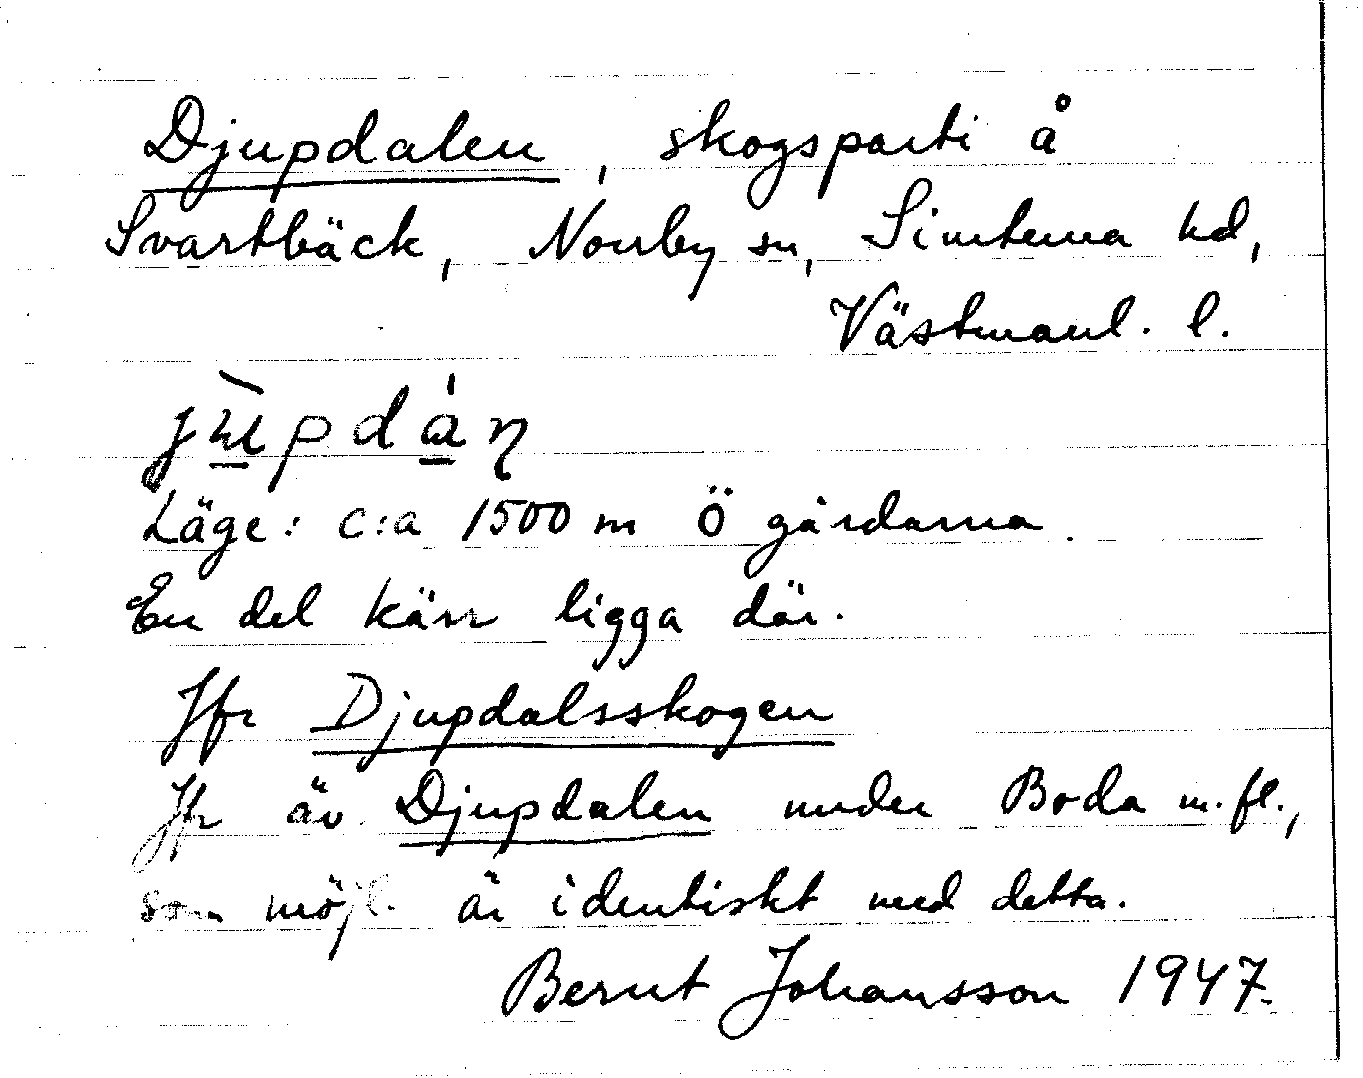 Djupdalen, skogsparti å
Svartbäck, Norrby sn, Simtuna hd,
Västmanl. l.
Läge: c:a 1500 m Ö gårdarna.
En del kärr ligga där.
Jfr Djupdalsskogen
Jfr äv. Djupdalen under Boda m. fl.,
som möjl. är identiskt med detta.
Bernt Johansson 1947.